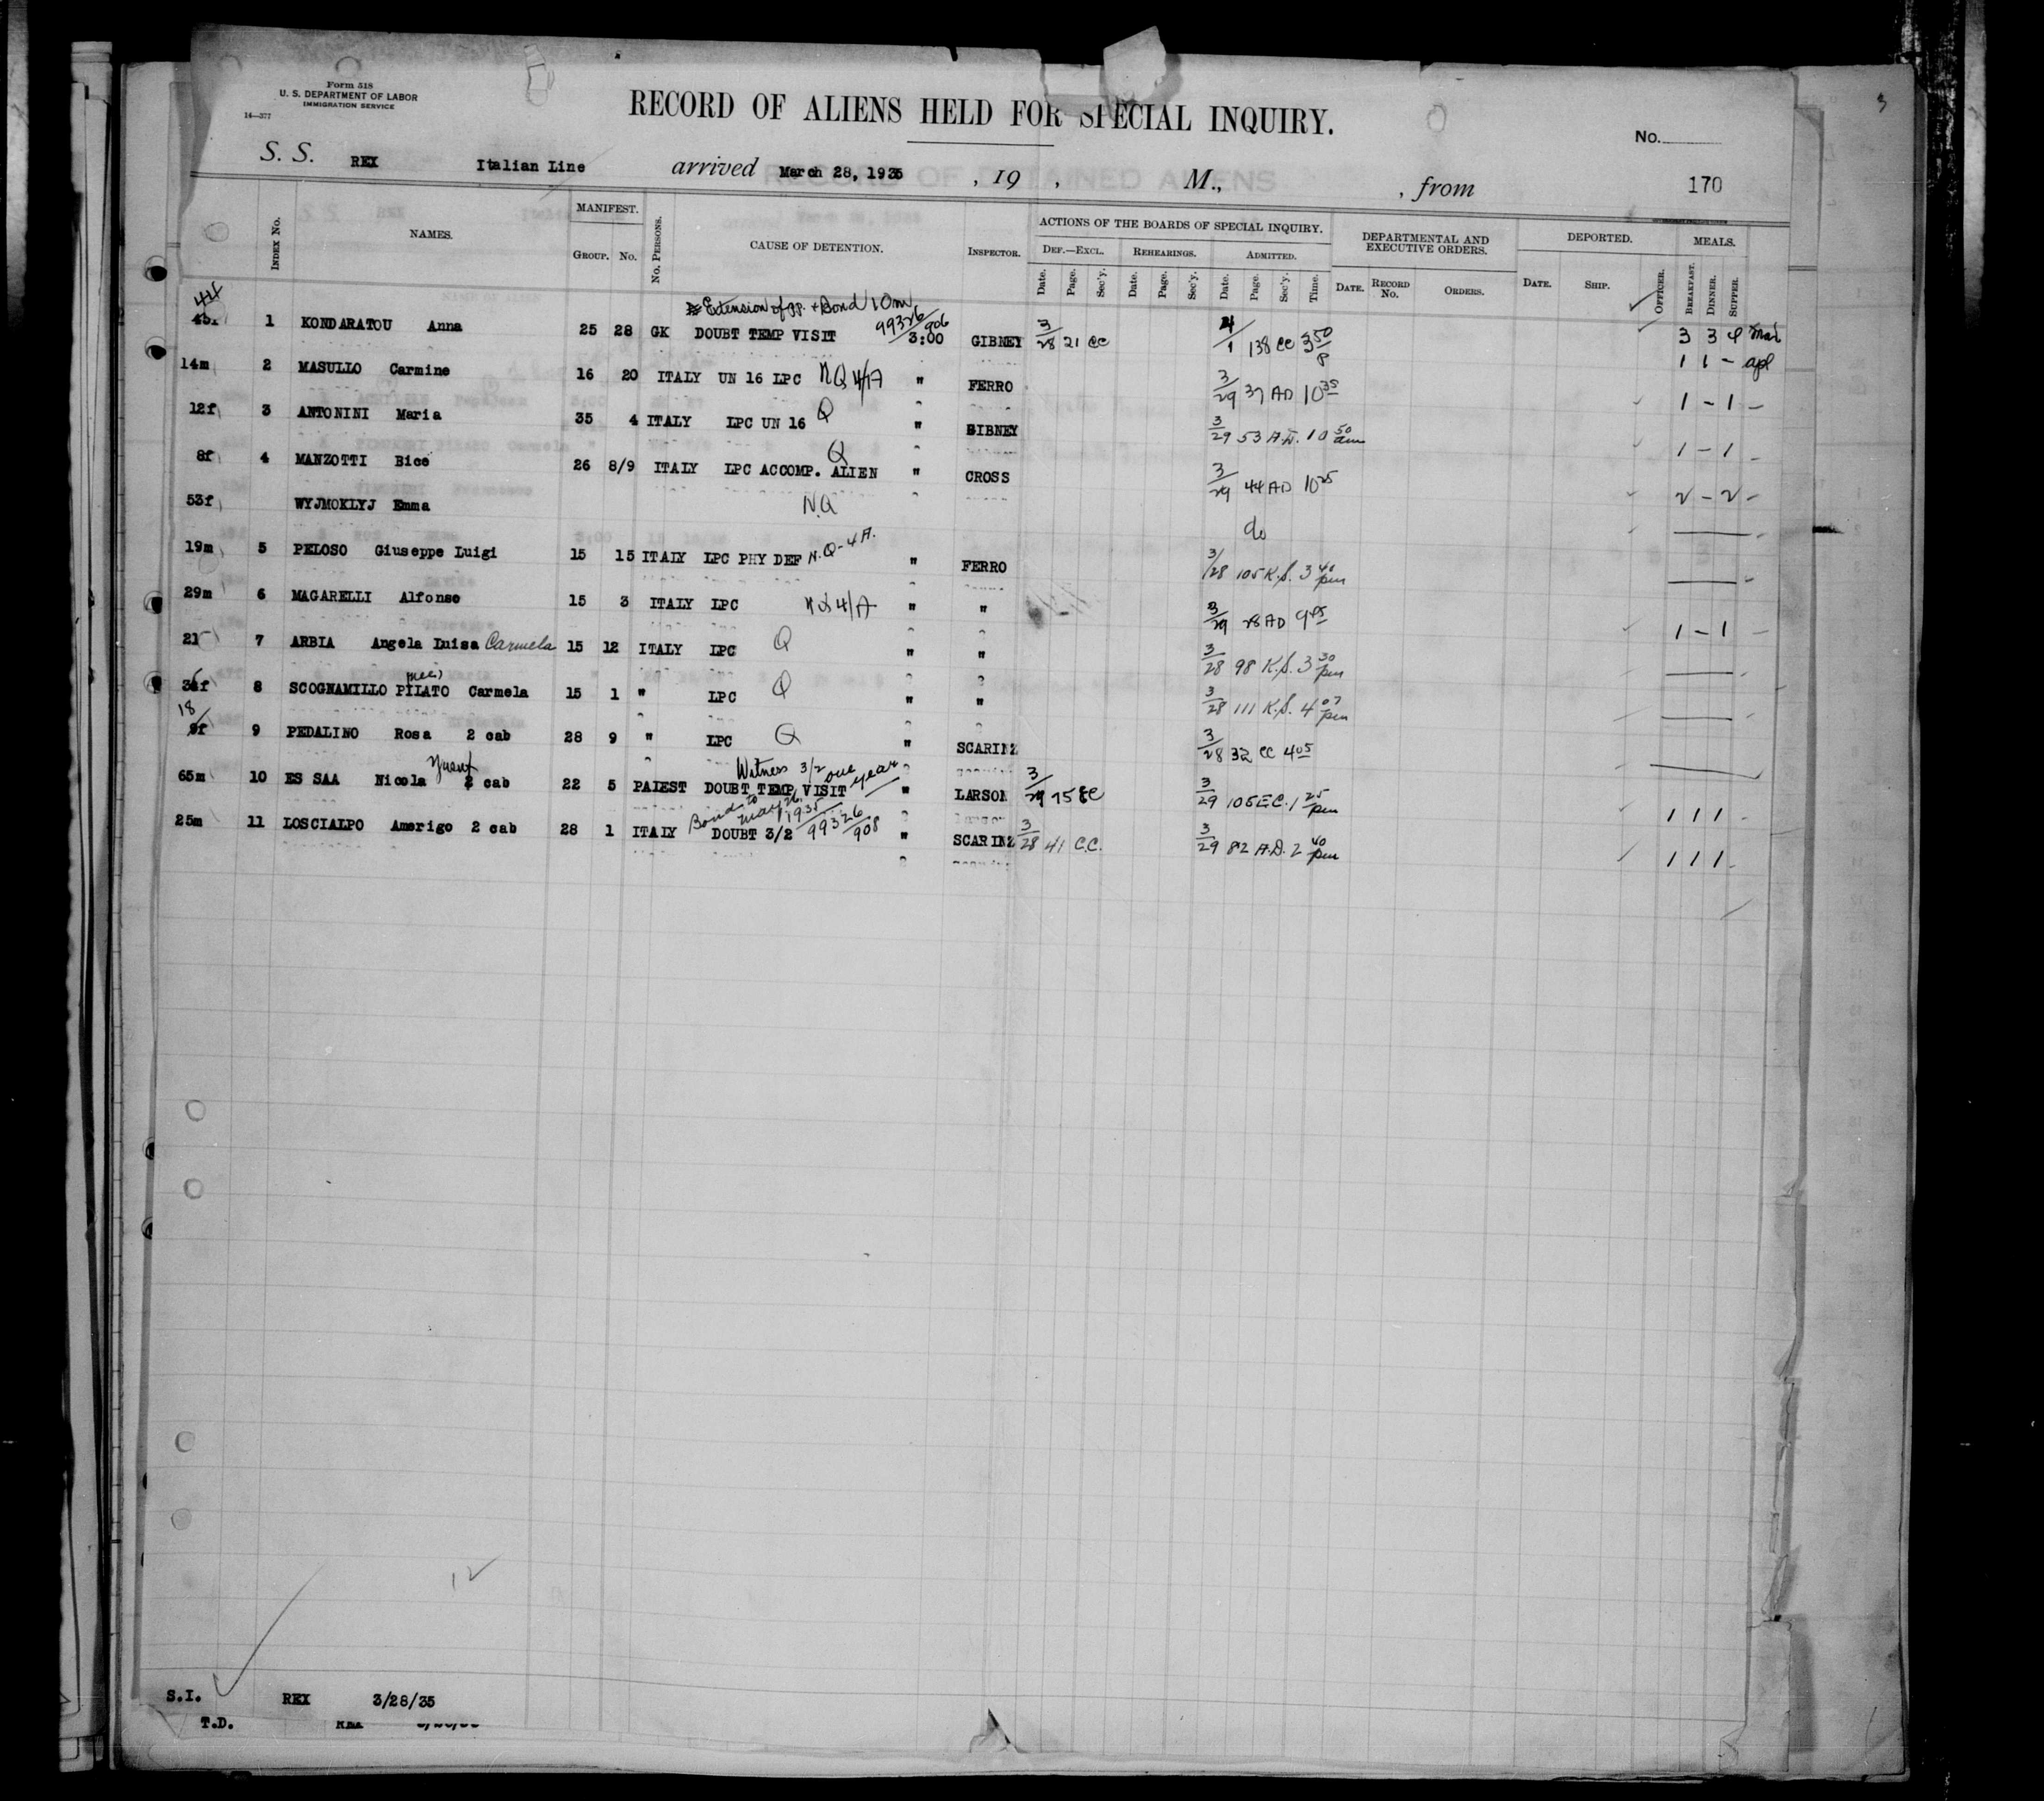 Form 518
U. S. DEPARTMENT OF LABOR
IMMIGRATION SERVICE
14—377
RECORD OF ALIENS HELD FOR SPECIAL INQUIRY.
No.
S. S. REX Italian Line arrived March 28, 1935 , 19 , M., , from 170
INDEX No. NAMES. MANIFEST. GROUP. No. No. PERSONS. CAUSE OF DETENTION. INSPECTOR. ACTIONS OF THE BOARDS OF SPECIAL INQUIRY. DEF.—EXCL. Date. Page. Sec'y. REHEARINGS. Date. Page. Sec'y. ADMITTED. Date. Page. Sec'y. Time. DEPARTMENTAL AND EXECUTIVE ORDERS. DATE. RECORD No. ORDERS. DEPORTED. DATE. SHIP. OFFICER. MEALS. BREAKFAST. DINNER. SUPPER.
Extension of pp. + Bond 10m
1 KONDARATOU Anna 25 28 GK DOUBT TEMP VISIT 99326/906 3:00 GIBNEY 3/28 21 CC 4/1 138 CC 3 50 P 3 3 4 Mar
1 1 - apl
14m 2 MASULLO Carmine 16 20 ITALY UN 16 LPC NQ 4/A " FERRO 3/29 37 AD 10 35 1 - 1 -
12f 3 ANTONINI Maria 35 4 ITALY LPC UN 16 Q " GIBNEY 3/29 53 A.D. 10 50 am 1 - 1 -
8f 4 MANZOTTI Bice 26 8/9 ITALY LPC ACCOMP. ALIEN Q " CROSS 3/29 44 AD 10 25 2 - 2 -
53f WYJMOKLYJ Emma N.Q do
19m 5 PELOSO Giuseppe Luigi 15 15 ITALY LPC PHY DEF N.Q - 4 A. " FERRO 3/28 105 K.S. 3 40 pm
29m 6 MAGARELLI Alfonso 15 3 ITALY LPC NQ 4/A " " 3/29 28 AD 9 45 1 - 1 -
21 7 ARBIA Angela Luisa Carmela 15 12 ITALY LPC Q " " 3/28 98 K.S. 3 30 pm
8 SCOGNAMILLO (nee) PILATO Carmela 15 1 " LPC Q " " 3/28 111 K.S. 4 07 pm
18
9f 9 PEDALINO Rosa 2 cab 28 9 " LPC Q " SCARINZ 3/28 32 CC 4 05
Witness 3/2 one year
65m 10 ES SAA Nicola 2 cab 22 5 PALEST DOUBT TEMP VISIT " LARSON 3/29 75 EC 3/29 105 E.C. 1 25 pm 1 1 1 -
Bond to May 26, 1935 99326/908
25m 11 LOSCIALPO Amerigo 2 cab 28 1 ITALY DOUBT 3/2 " SCARINZ 3/28 41 C.C. 3/29 82 A.D. 2 40 pm 1 1 1 -
12
S.I. REX 3/28/35
T.D. REX